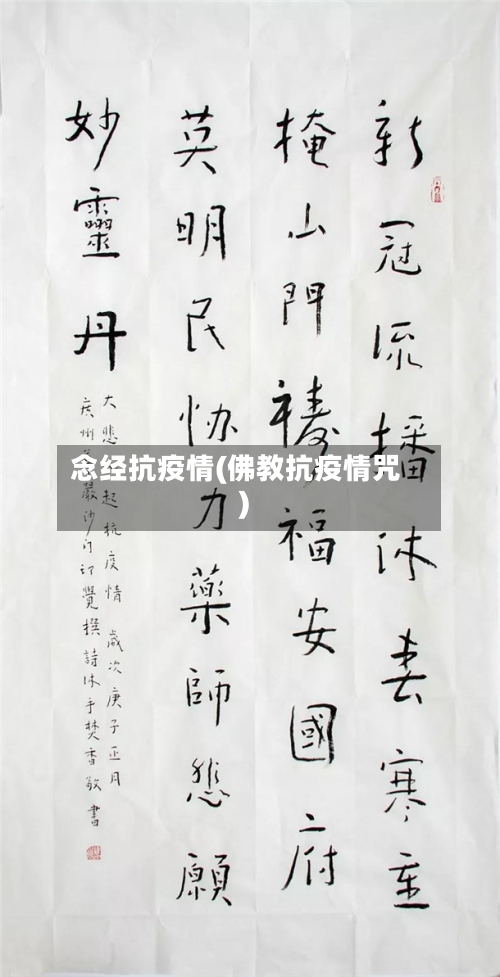 新冠流播沐春寒重
掩山門禱福安國府
英明民协力藥師悲願
妙靈丹
大悲起抗疫情 歲次庚子正月
廣州嚴沙门印覺撰詩沐手焚香敬書
念经抗疫情(佛教抗疫情咒
)